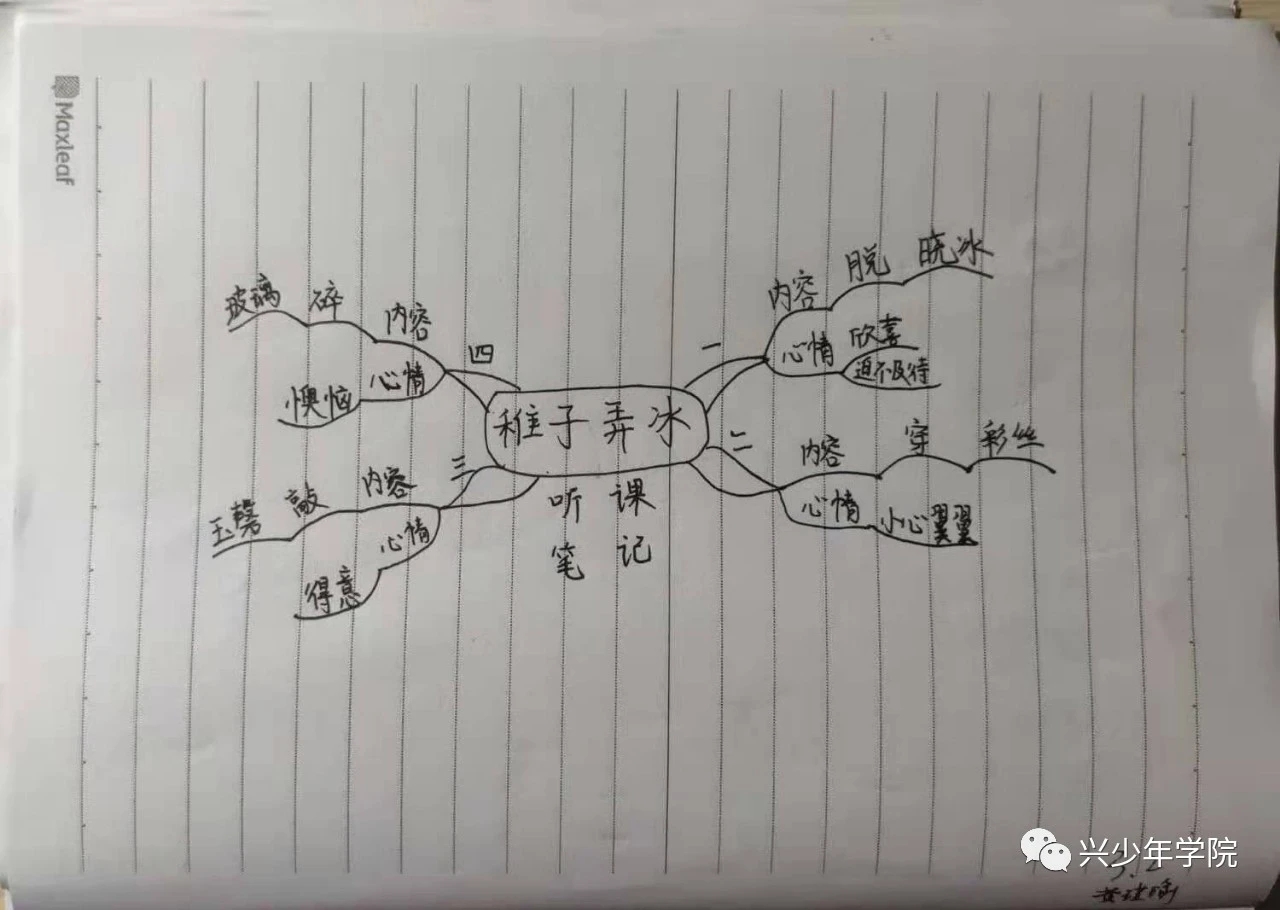 Maxleaf
稚子弄冰
听课
笔记
一
内容 脱 晓冰
心情 欣喜
迫不及待
二
内容 穿 彩丝
心情 小心翼翼
三
内容 敲 玉磬
心情 得意
四
内容 碎 玻璃
心情 懊恼
兴少年学院